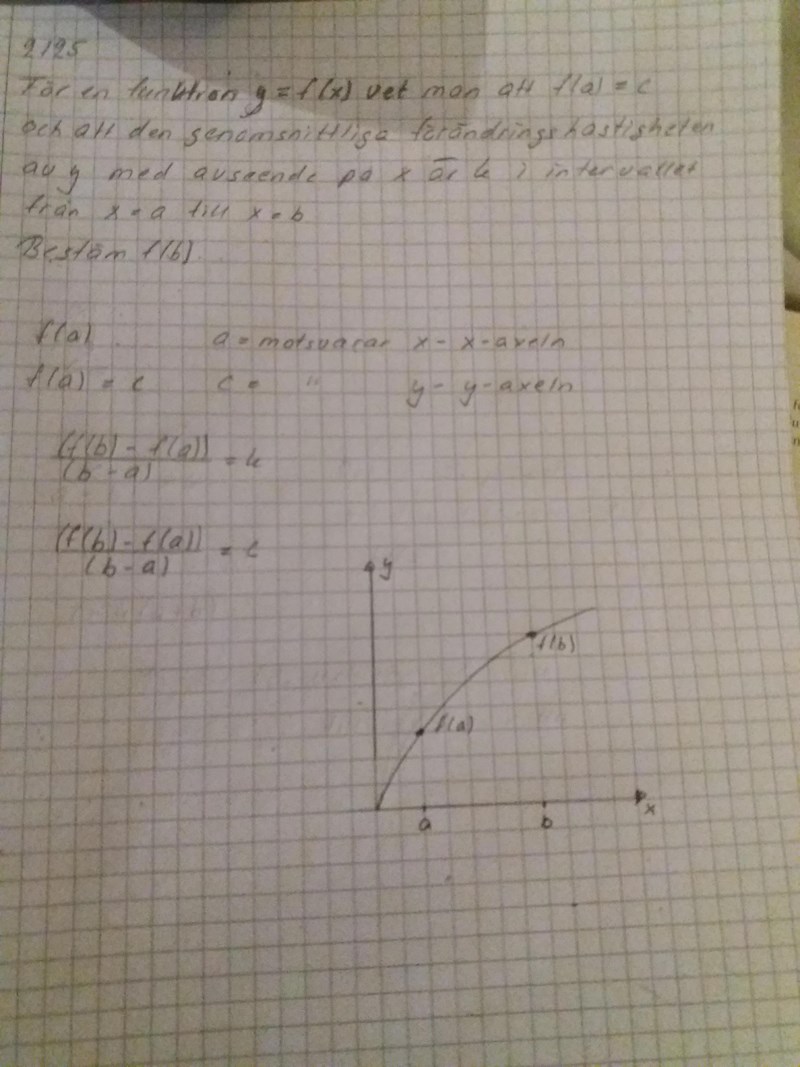 2125
För en funktion y = f(x) vet man att f(a) = c
och att den genomsnittliga förändringshastigheten
av y med avseende på x är k i intervallet
från x = a till x = b
Bestäm f(b).
f(a) a = motsvarar x - x-axeln
f(a) = c c = " y - y-axeln
(f(b) - f(a)) / (b - a) = k
(f(b) - f(a)) / (b - a) = c
y
f(b)
f(a)
x
a b